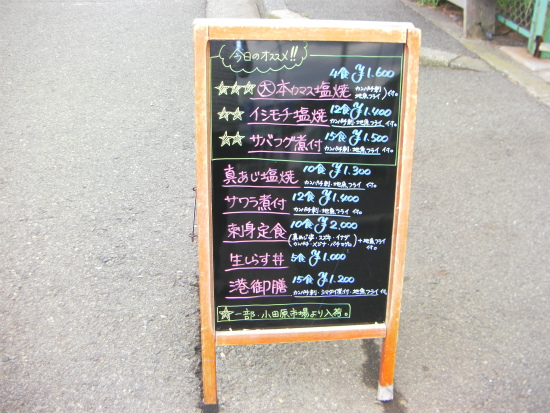 今日のオススメ!!
4食 ¥1.600
☆☆☆ 大本カマス塩焼 カンパチ刺・地魚フライ 付。
12食 ¥1.400
☆☆ イシモチ塩焼 カンパチ刺・地魚フライ 付。
15食 ¥1.500
☆☆ サバフグ煮付 カンパチ刺・地魚フライ 付。
10食 ¥1.300
真あじ塩焼 カンパチ刺・地魚フライ 付。
12食 ¥1.400
サワラ煮付 カンパチ刺・地魚フライ 付。
10食 ¥2,000
刺身定食 +地魚フライ付。
生しらす丼 5食 ¥1.000
15食 ¥1.200
港御膳 カンパチ刺・ 煮付・地魚フライ 付。
☆一部・小田原市場より入荷。